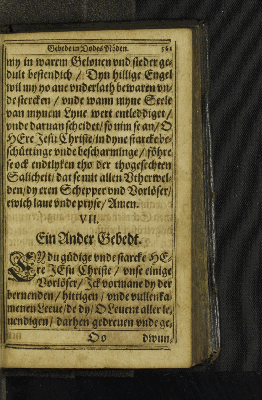 Gebede in Dodes Nöden. 561
my in warem Gelouen vnd steder ge-
dult bestendich / Dyn hillige Engel
wil my yo ane vnderlath bewaren vn-
de stercken / vnde wann myne Seele
van mynem Lyue wert entleddiget /
vnde daruan scheidet / so nim se an / O
HEre Jesu Christe / in dyne starcke be-
schüttinge vnd bescharminge / föhre
se ock endtlyken tho der thogesechten
Salicheit / dat se mit allen Vtherwel-
den / dy eren Schepper vnd Vorlöser /
ewich laue vnde pryse / Amen.
VII.
Ein Ander Gebedt.
EY du güdige vnde starcke HE-
re JEsu Christe / vnse einige
Vorlöser / Jck vormane dy der
bernenden / hittigen / vnde vullenka-
menen Leeue / de dy / O Leuent aller le-
uendigen / darhen gedreuen vnde ge-
Oo dwun-